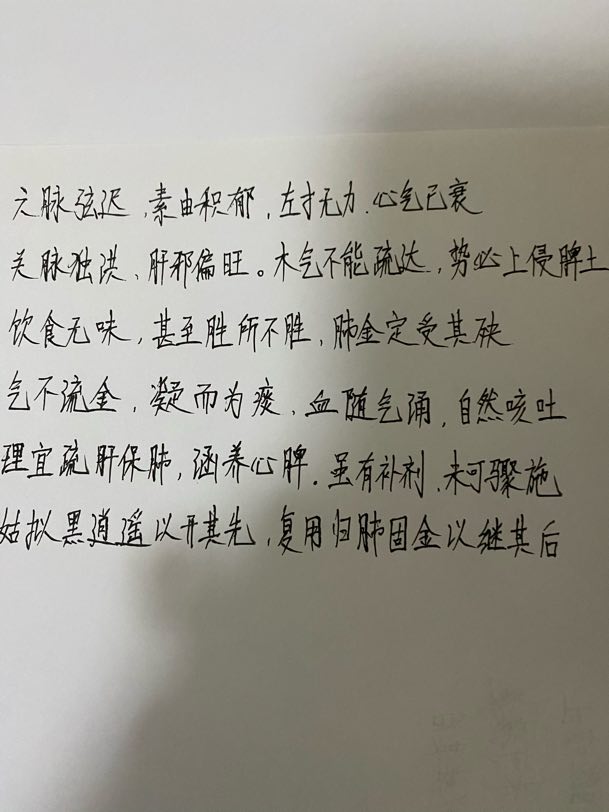 六脉弦迟，素由积郁，左寸无力、心气已衰
关脉独洪、肝邪偏旺。木气不能疏达，势必上侵脾土
饮食无味，甚至胜所不胜，肺金定受其殃
气不流金，凝而为痰、血随气涌，自然咳吐
理宜疏肝保肺，涵养心脾。虽有补剂、未可骤施
姑拟黑逍遥以开其先，复用归肺固金以继其后